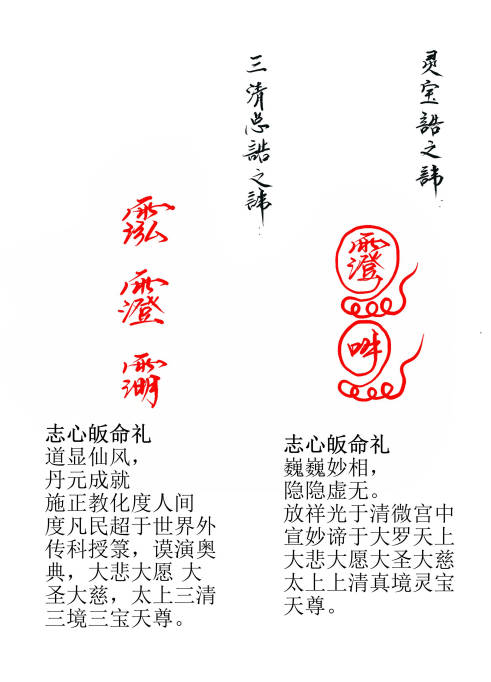 三清总誥之諱
志心皈命礼
道显仙风，
丹元成就
施正教化度人间
度凡民超于世界外
传科授箓，谟演奥
典，大悲大愿 大
圣大慈，太上三清
三境三宝天尊。
灵宝誥之諱
志心皈命礼
巍巍妙相，
隐隐虚无。
放祥光于清微宫中
宣妙谛于大罗天上
大悲大愿大圣大慈
太上上清真境灵宝
天尊。